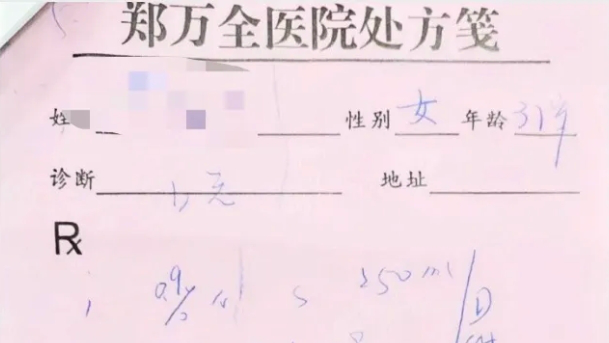 郑万全医院处方笺
姓 性别 女 年龄 31岁
诊断 地址
Rx
0.9% N S 250ml